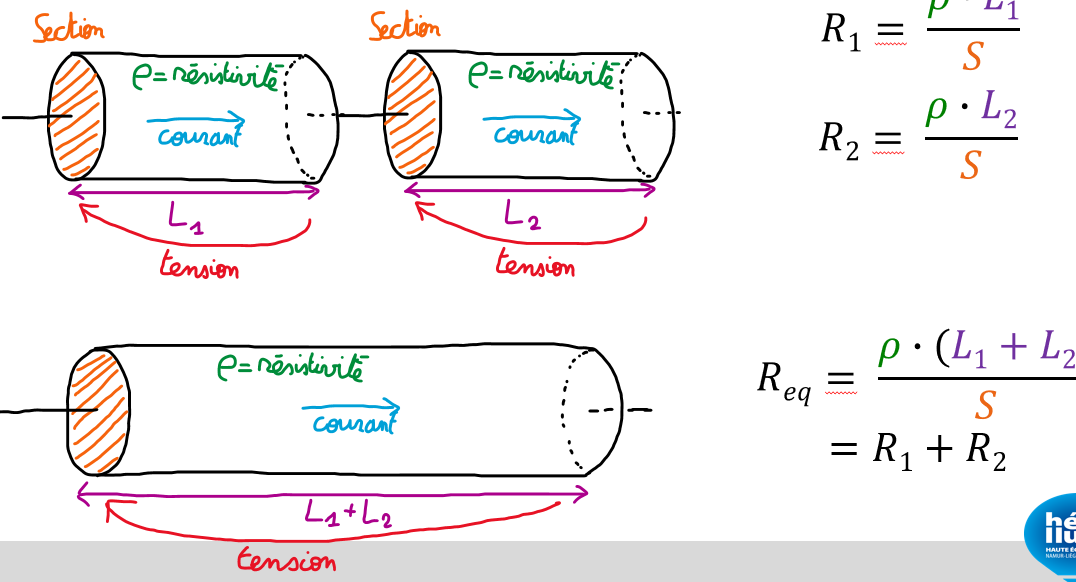 Section
ρ = résistivité
courant
L₁
tension
Section
ρ = résistivité
courant
L₂
tension
R₁ = ρ · L₁ / S
R₂ = ρ · L₂ / S
ρ = résistivité
courant
L₁ + L₂
tension
R_eq = ρ · (L₁ + L₂ / S
= R₁ + R₂